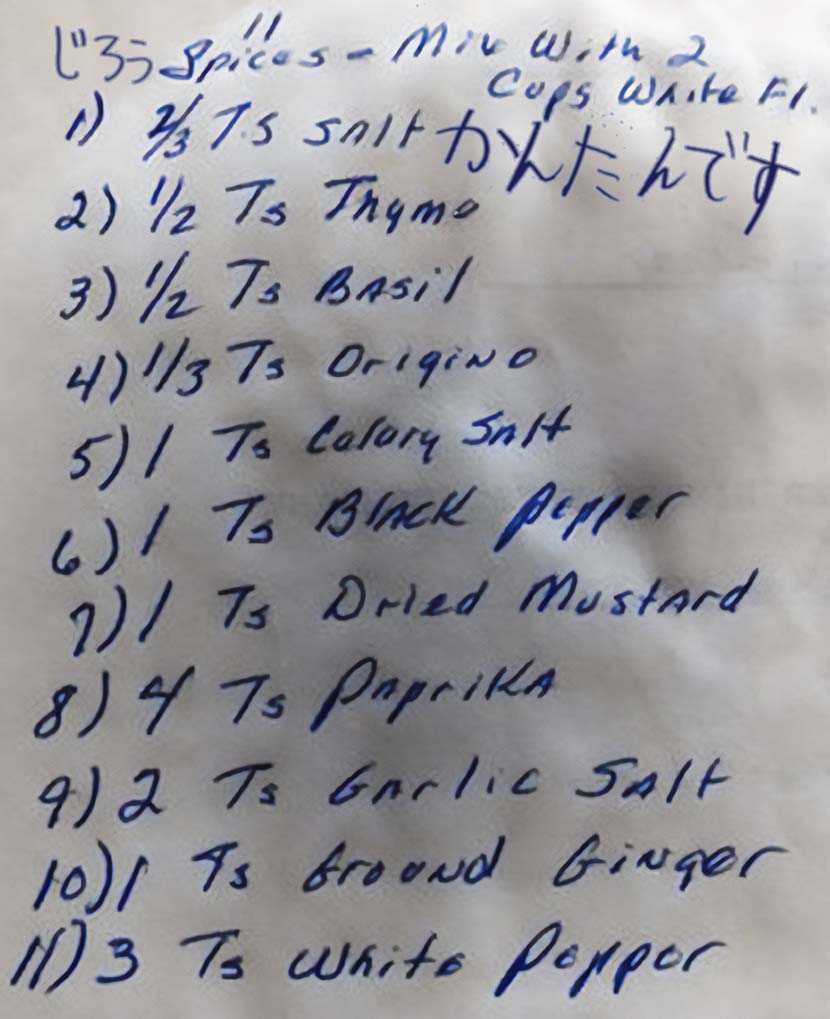 じろう 11 Spices - Mix With 2
Cups White Fl.
1) 2/3 Ts Salt かんたんです
2) 1/2 Ts Thyme
3) 1/2 Ts Basil
4) 1/3 Ts Origino
5) 1 Ts Celery Salt
6) 1 Ts Black Pepper
7) 1 Ts Dried Mustard
8) 4 Ts Paprika
9) 2 Ts Garlic Salt
10) 1 Ts Ground Ginger
11) 3 Ts White Pepper